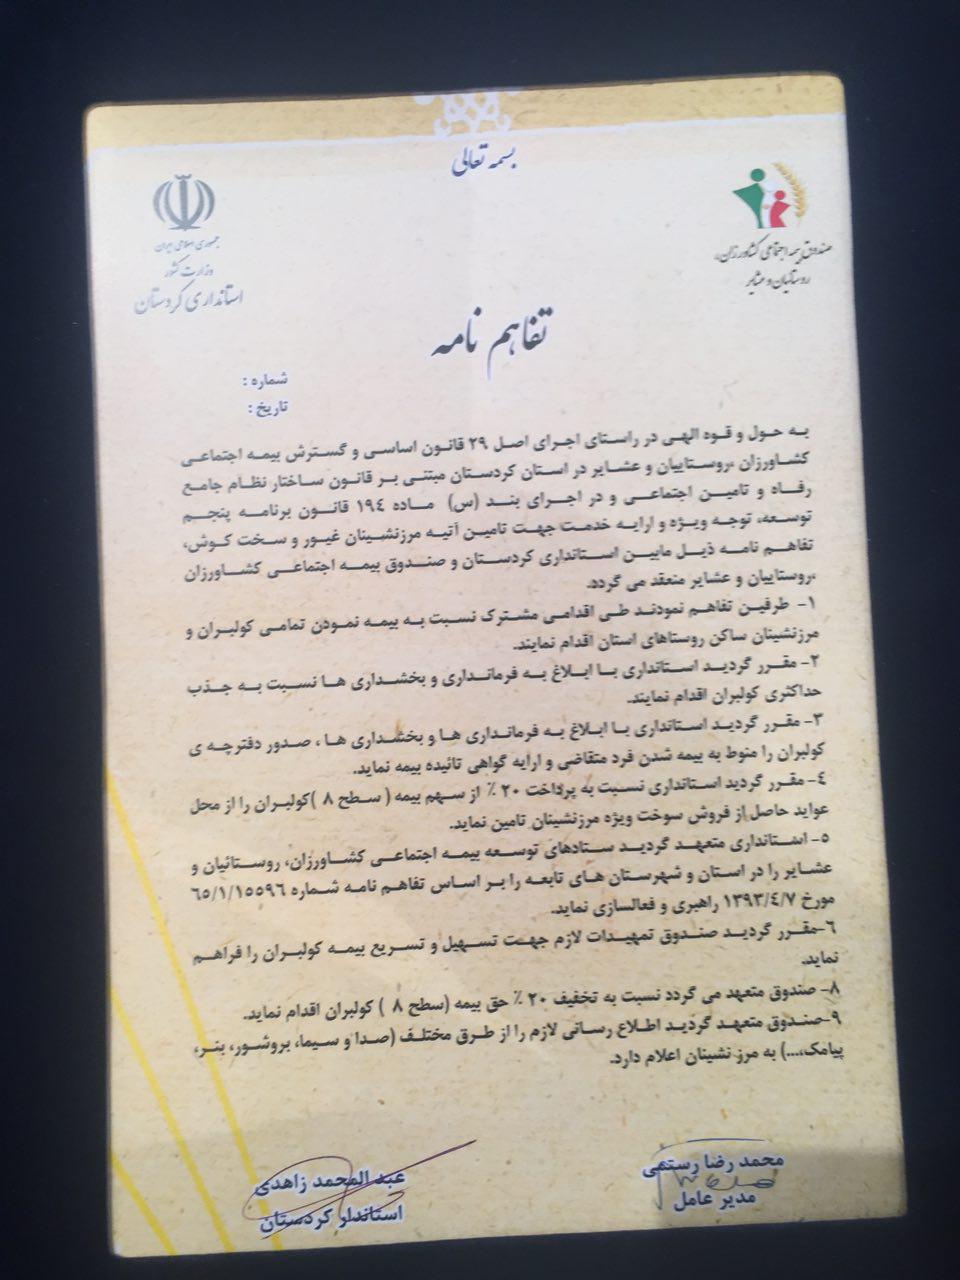 بسمه تعالی
صندوق بیمه اجتماعی کشاورزان،
روستائیان و عشایر
جمهوری اسلامی ایران
وزارت کشور
استانداری کردستان
تفاهم نامه
شماره :
تاریخ :
به حول و قوه الهی در راستای اجرای اصل ۲۹ قانون اساسی و گسترش بیمه اجتماعی
کشاورزان ،روستاییان و عشایر در استان کردستان مبتنی بر قانون ساختار نظام جامع
رفاه و تامین اجتماعی و در اجرای بند (س) ماده ۱۹۴ قانون برنامه پنجم
توسعه، توجه ویژه و ارایه خدمت جهت تامین آتیه مرزنشینان غیور و سخت کوش،
تفاهم نامه ذیل مابین استانداری کردستان و صندوق بیمه اجتماعی کشاورزان
،روستاییان و عشایر منعقد می گردد.
۱- طرفین تفاهم نمودند طی اقدامی مشترک نسبت به بیمه نمودن تمامی کولبران و
مرزنشینان ساکن روستاهای استان اقدام نمایند.
۲- مقرر گردید استانداری با ابلاغ به فرمانداری و بخشداری ها نسبت به جذب
حداکثری کولبران اقدام نمایند.
۳- مقرر گردید استانداری با ابلاغ به فرمانداری ها و بخشداری ها ، صدور دفترچه ی
کولبران را منوط به بیمه شدن فرد متقاضی و ارایه گواهی تائیده بیمه نماید.
۴- مقرر گردید استانداری نسبت به پرداخت ۲۰ ٪ از سهم بیمه ( سطح ۸ )کولبران را از محل
عواید حاصل از فروش سوخت ویژه مرزنشینان تامین نماید.
۵- استانداری متعهد گردید ستادهای توسعه بیمه اجتماعی کشاورزان، روستائیان و
عشایر را در استان و شهرستان های تابعه را بر اساس تفاهم نامه شماره ۶۵/۱/۱۵۵۹۶
مورخ ۱۳۹۳/۴/۷ راهبری و فعالسازی نماید.
۶-مقرر گردید صندوق تمهیدات لازم جهت تسهیل و تسریع بیمه کولبران را فراهم
نماید.
۸- صندوق متعهد می گردد نسبت به تخفیف ۲۰ ٪ حق بیمه (سطح ۸ ) کولبران اقدام نماید.
۹-صندوق متعهد گردید اطلاع رسانی لازم را از طرق مختلف (صدا و سیما، بروشور، بنر،
پیامک،...) به مرز نشینان اعلام دارد.
محمد رضا رستمی
مدیر عامل
عبدالمحمد زاهدی
استاندار کردستان